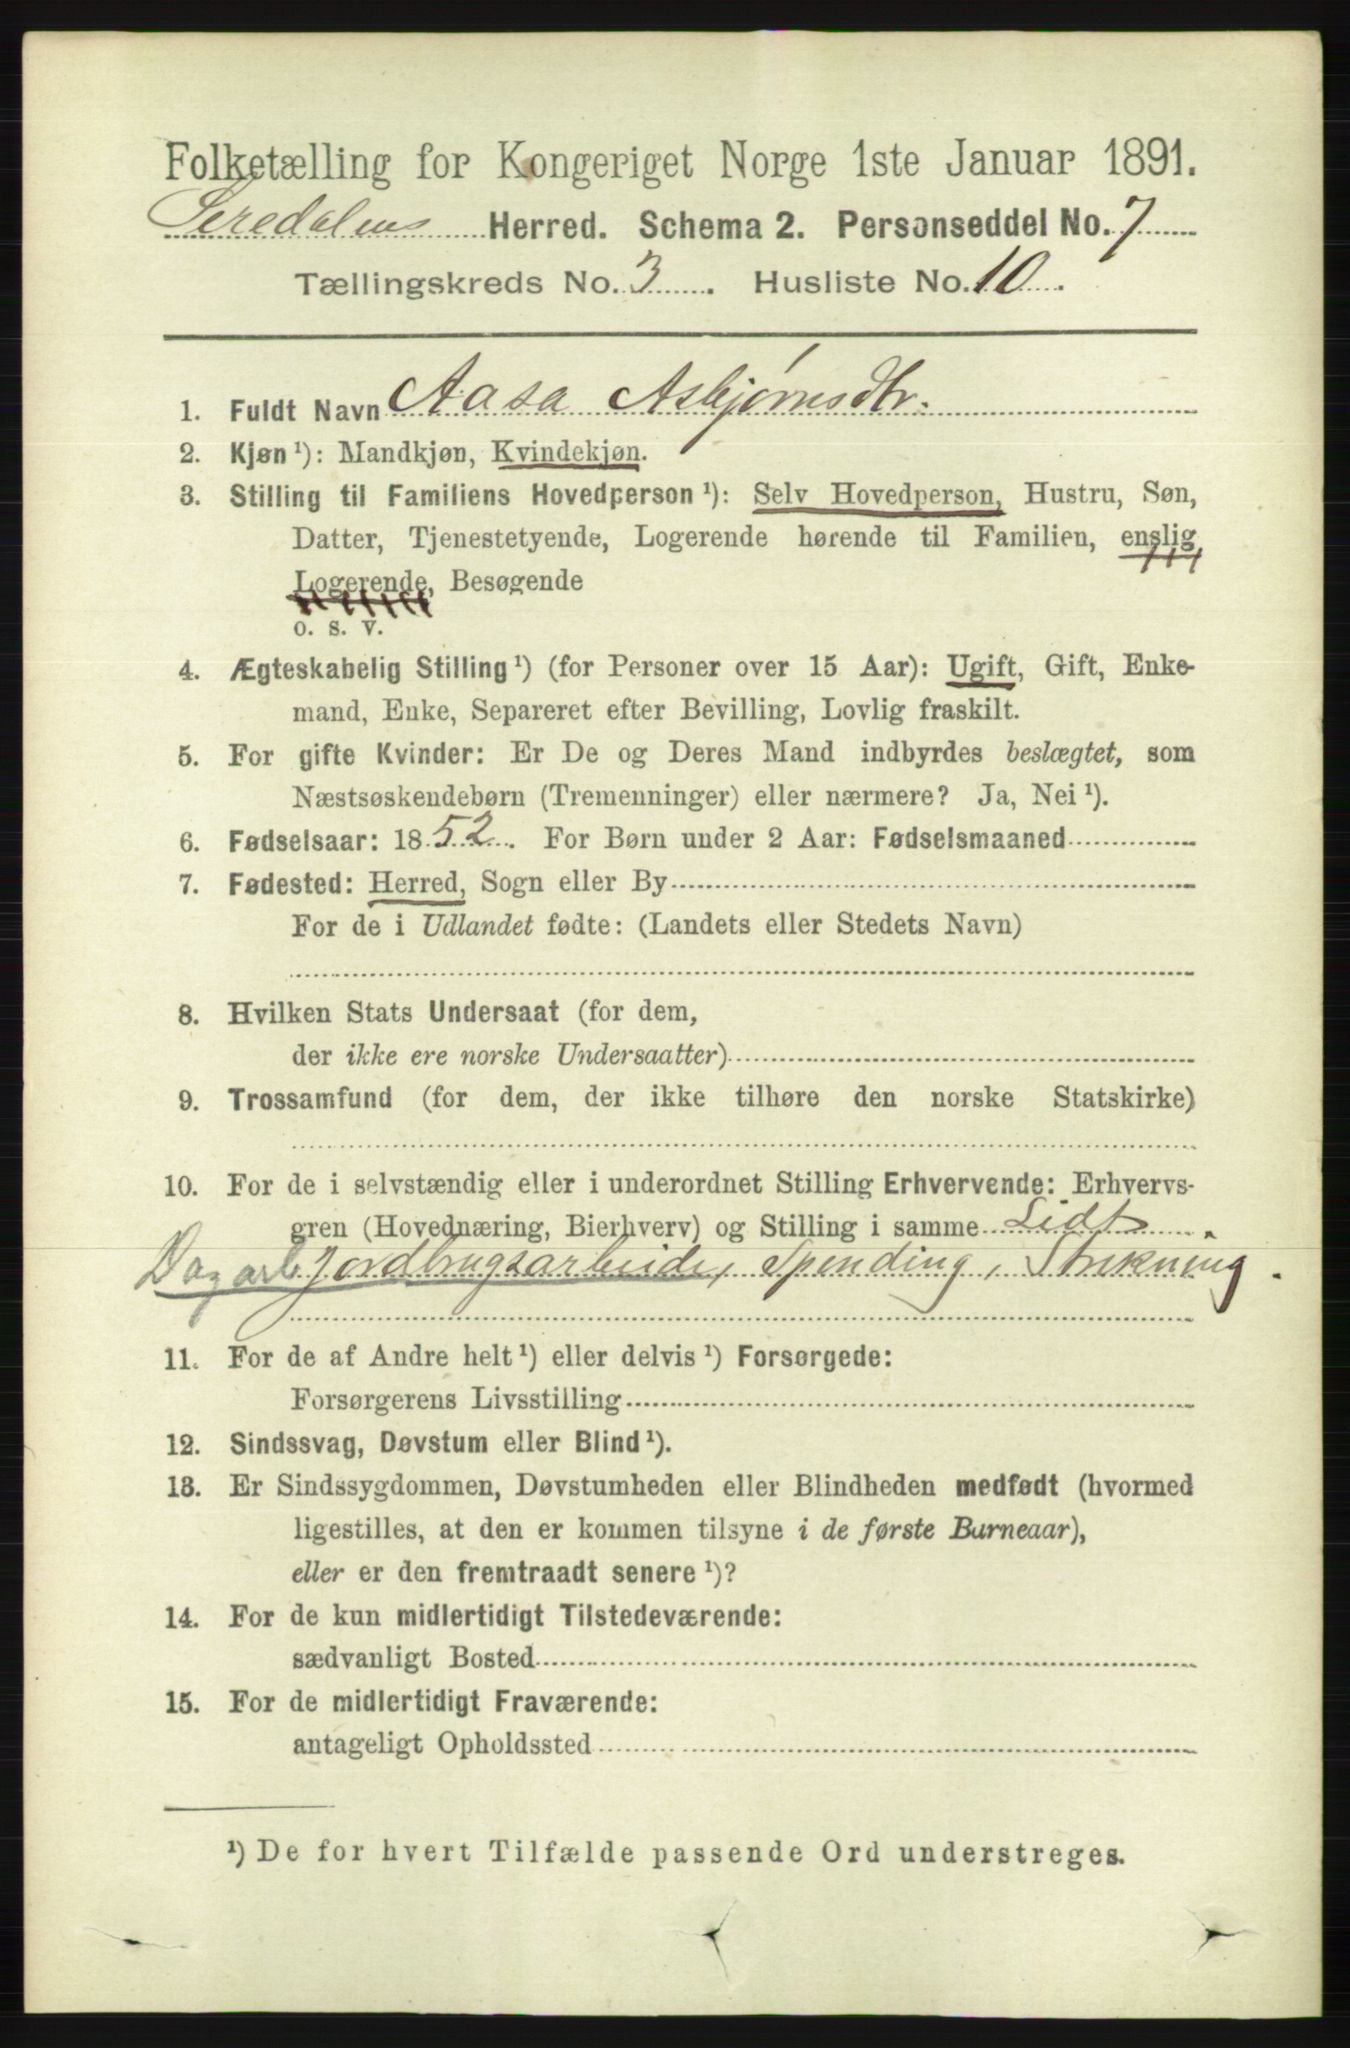 Folketælling for Kongeriget Norge 1ste Januar 1891.
Siredalens Herred. Schema 2. Personseddel No. 7
Tællingskreds No. 3. Husliste No. 10.
1. Fuldt Navn Aasa Asbjørnsdtr.
2. Kjøn ¹): Mandkjøn, Kvindekjøn.
3. Stilling til Familiens Hovedperson ¹): Selv Hovedperson, Hustru, Søn,
Datter, Tjenestetyende, Logerende hørende til Familien, enslig
Logerende, Besøgende
o. s. v.
4. Ægteskabelig Stilling ¹) (for Personer over 15 Aar): Ugift, Gift, Enke-
mand, Enke, Separeret efter Bevilling, Lovlig fraskilt.
5. For gifte Kvinder: Er De og Deres Mand indbyrdes beslægtet, som
Næstsøskendebørn (Tremenninger) eller nærmere? Ja, Nei ¹).
6. Fødselsaar: 1852. For Børn under 2 Aar: Fødselsmaaned
7. Fødested: Herred, Sogn eller By
For de i Udlandet fødte: (Landets eller Stedets Navn)
8. Hvilken Stats Undersaat (for dem,
der ikke ere norske Undersaatter)
9. Trossamfund (for dem, der ikke tilhøre den norske Statskirke)
10. For de i selvstændig eller i underordnet Stilling Erhvervende: Erhvervs-
gren (Hovednæring, Bierhverv) og Stilling i samme Lidt
Dagarb Jordbrugsarbeide, Spending, Strikning.
11. For de af Andre helt ¹) eller delvis ¹) Forsørgede:
Forsørgerens Livsstilling
12. Sindssvag, Døvstum eller Blind ¹).
13. Er Sindssygdommen, Døvstumheden eller Blindheden medfødt (hvormed
ligestilles, at den er kommen tilsyne i de første Barneaar),
eller er den fremtraadt senere ¹)?
14. For de kun midlertidigt Tilstedeværende:
sædvanligt Bosted
15. For de midlertidigt Fraværende:
antageligt Opholdssted
¹) De for hvert Tilfælde passende Ord understreges.